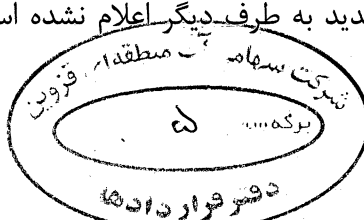 دید به طرف دیگر اعلام نشده اس
شرکت سهامی آب منطقه‌ای قزوین
برگه..... ۵
دفتر قراردادها